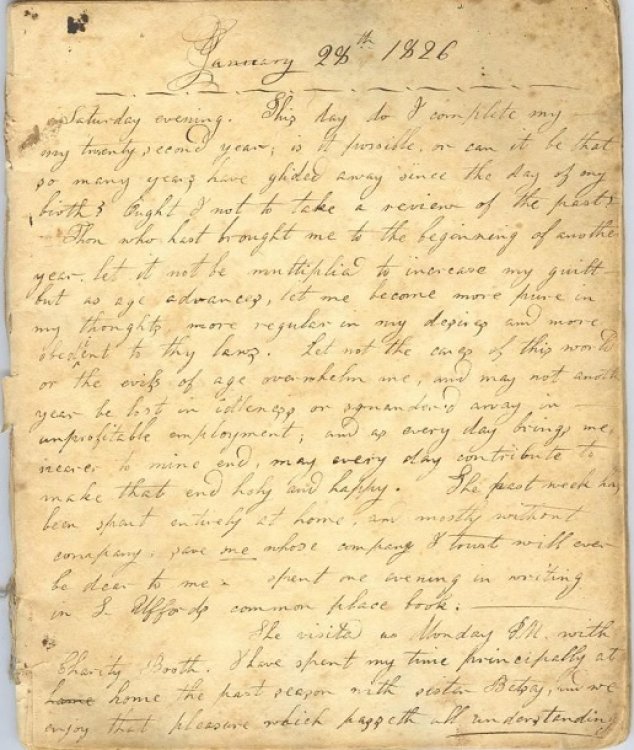 January 28th 1826
Saturday evening. This day do I complete my
my twenty second year; is it possible, or can it be that
so many years have glided away since the day of my
birth? Ought I not to take a review of the past?
Thou who hast brought me to the beginning of another
year, let it not be multiplied to increase my guilt
but as age advances, let me become more pure in
my thoughts, more regular in my desires and more
obedient to thy laws. Let not the cares of this world
or the evils of age overwhelm me, and may not anoth
year be lost in idleness or squander'd away in
unprofitable employment; and as every day brings me
nearer to mine end, may every day contribute to
make that end holy and happy. The past week has
been spent entirely at home, and mostly without
company, save one whose company I trust will ever
be dear to me - spent one evening in writing
in L. Uffords common place book.
She visited us Monday P.M. with
Charity Booth. I have spent my time principally at
home home the past season with sister Betsay, and we
enjoy that pleasure which passeth all understanding